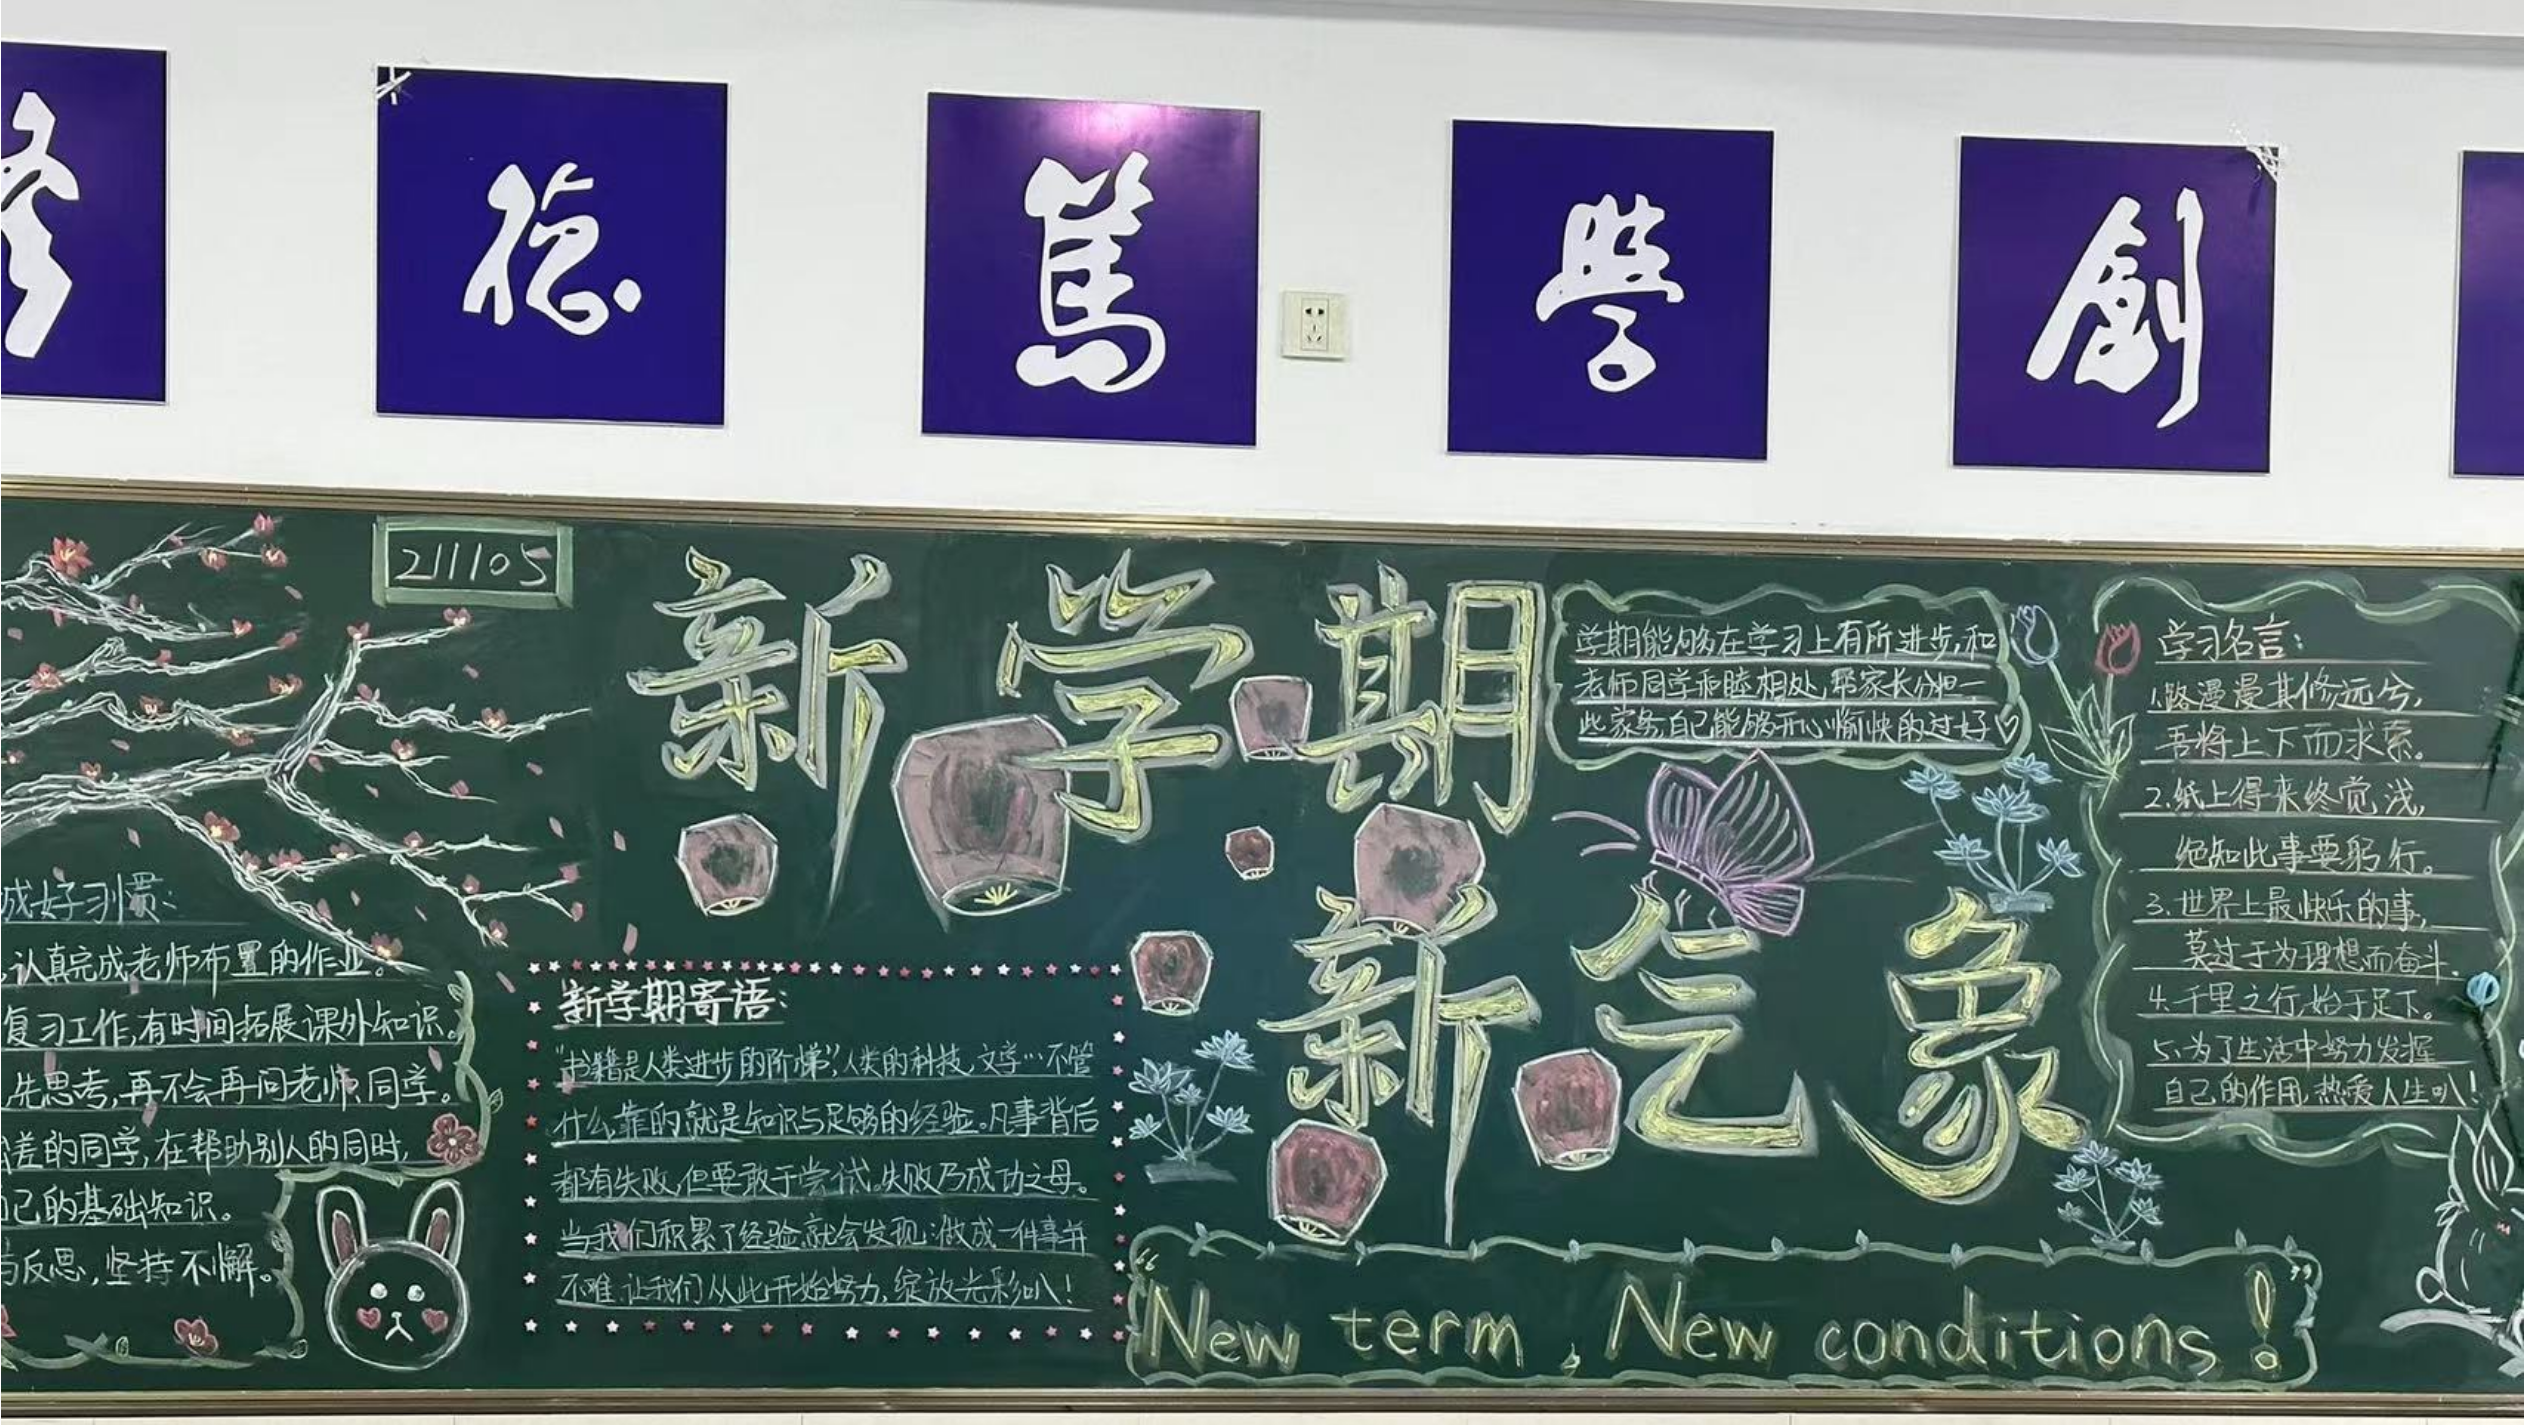 修
德
篤
學
創
211105
新学期
新气象
成好习惯:
认真完成老师布置的作业。
复习工作,有时间拓展课外知识。
先思考,再不会再问老师同学。
差的同学,在帮助别人的同时,
己的基础知识。
与反思,坚持不懈。
新学期寄语:
“书籍是人类进步的阶梯”,人类的科技、文学…不管
什么靠的就是知识与足够的经验。凡事背后
都有失败,但要敢于尝试。失败乃成功之母。
当我们积累了经验就会发现:做成一件事并
不难.让我们从此开始努力,绽放光彩叭!
学期能够在学习上有所进步,和
老师同学和睦相处,帮家长分担一
些家务,自己能够开心愉快的过好
学习名言:
1.路漫漫其修远兮,
吾将上下而求索。
2.纸上得来终觉浅,
绝知此事要躬行。
3.世界上最快乐的事,
莫过于为理想而奋斗.
4.千里之行,始于足下。
5.为了生活中努力发挥
自己的作用,热爱人生叭!
“New term, New conditions!”